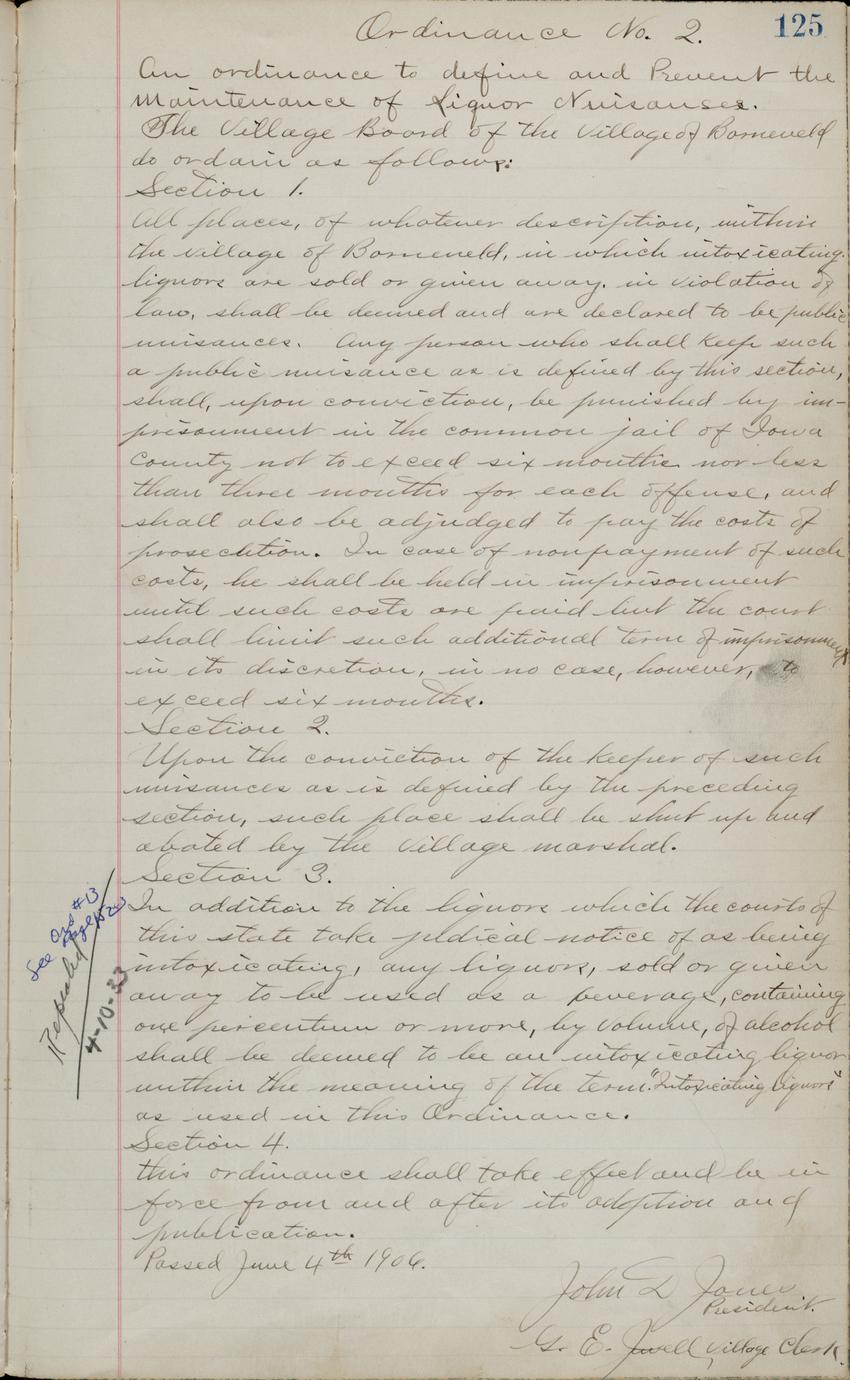 Ordinance No. 2.
125
An ordinance to define and Prevent the
Maintenance of Liquor Nuisanses.
The Village Board of the Village of Barneveld
do ordain as follows:
Section 1.
All places, of whatever description, within
the village of Barneveld, in which intoxicating
liquors are sold or given away. in violation of
law, shall be deemed and are declared to be public
nuisances. Any person who shall keep such
a public nuisance as is defined by this section,
shall, upon conviction, be punished by im-
prisonment in the common jail of Iowa
County not to exceed six months nor less
than three months for each offense, and
shall also be adjudged to pay the costs of
prosecution. In case of nonpayment of such
costs, he shall be held in imprisonment
until such costs are paid but the court
shall limit such additional term of imprisonment
in its discretion, in no case, however, to
exceed six months.
Section 2.
Upon the conviction of the keeper of such
nuisances as is defined by the preceding
section, such place shall be shut up and
abated by the Village marshal.
Section 3.
In addition to the liquors which the courts of
this state take judical notice of as being
intoxicating, any liquors, sold or given
away to be used as a beverage, containing
one percentum or more, by volume, of alcohol
shall be deemed to be an intoxicating liquor
within the meaning of the term "Intoxicating liquors"
as used in this Ordinance.
Section 4.
this ordinance shall take effect and be in
force from and after its adoption and
publication.
Passed June 4th 1906.
John D Jones
President.
G. E. Jewell, Village Clerk.
See Ord #13
Page
Repealed
4-10-33